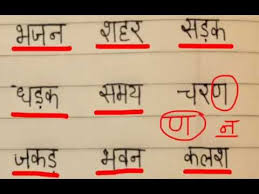 भजन शहर सड़क
धड़क समय चरण
ण न
जकड़ भवन कलश